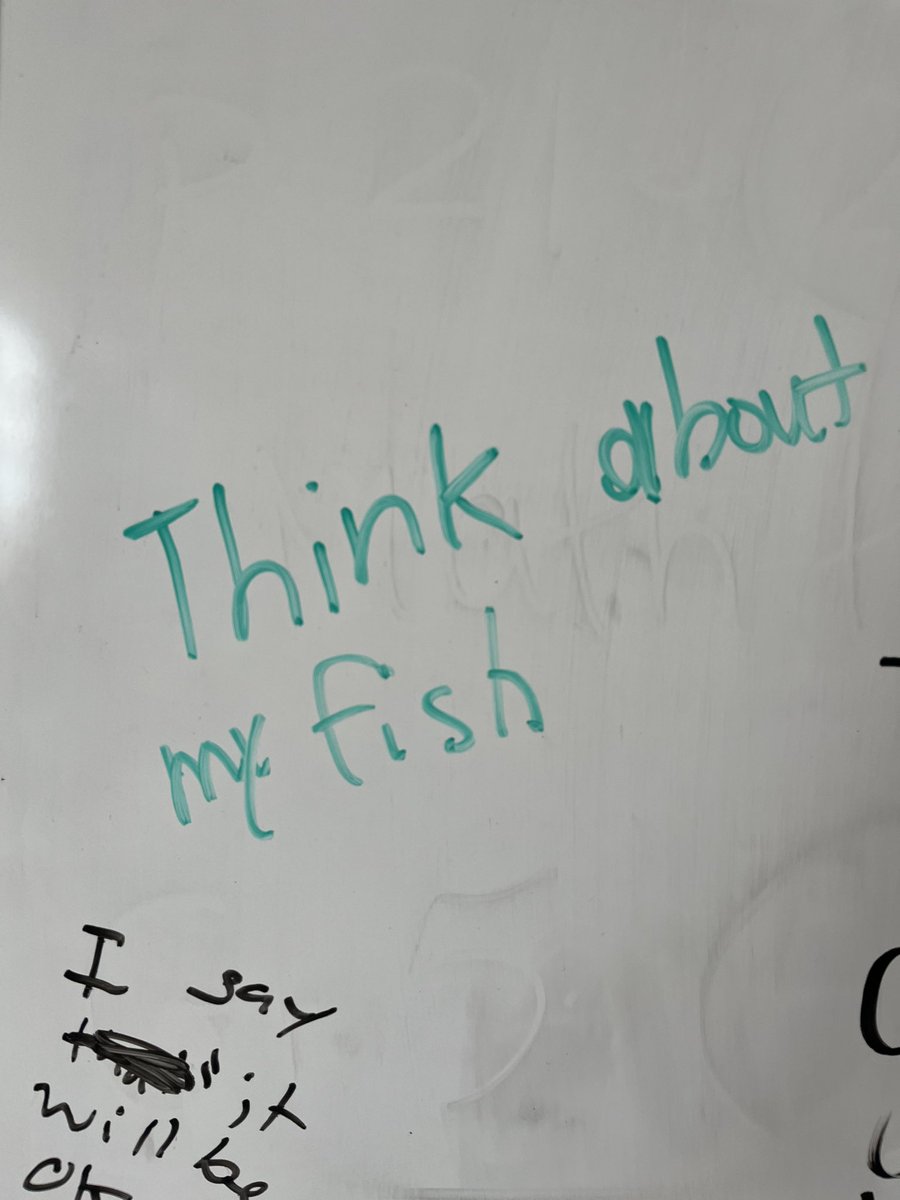 Think about
my fish
I say
it
will be
ok